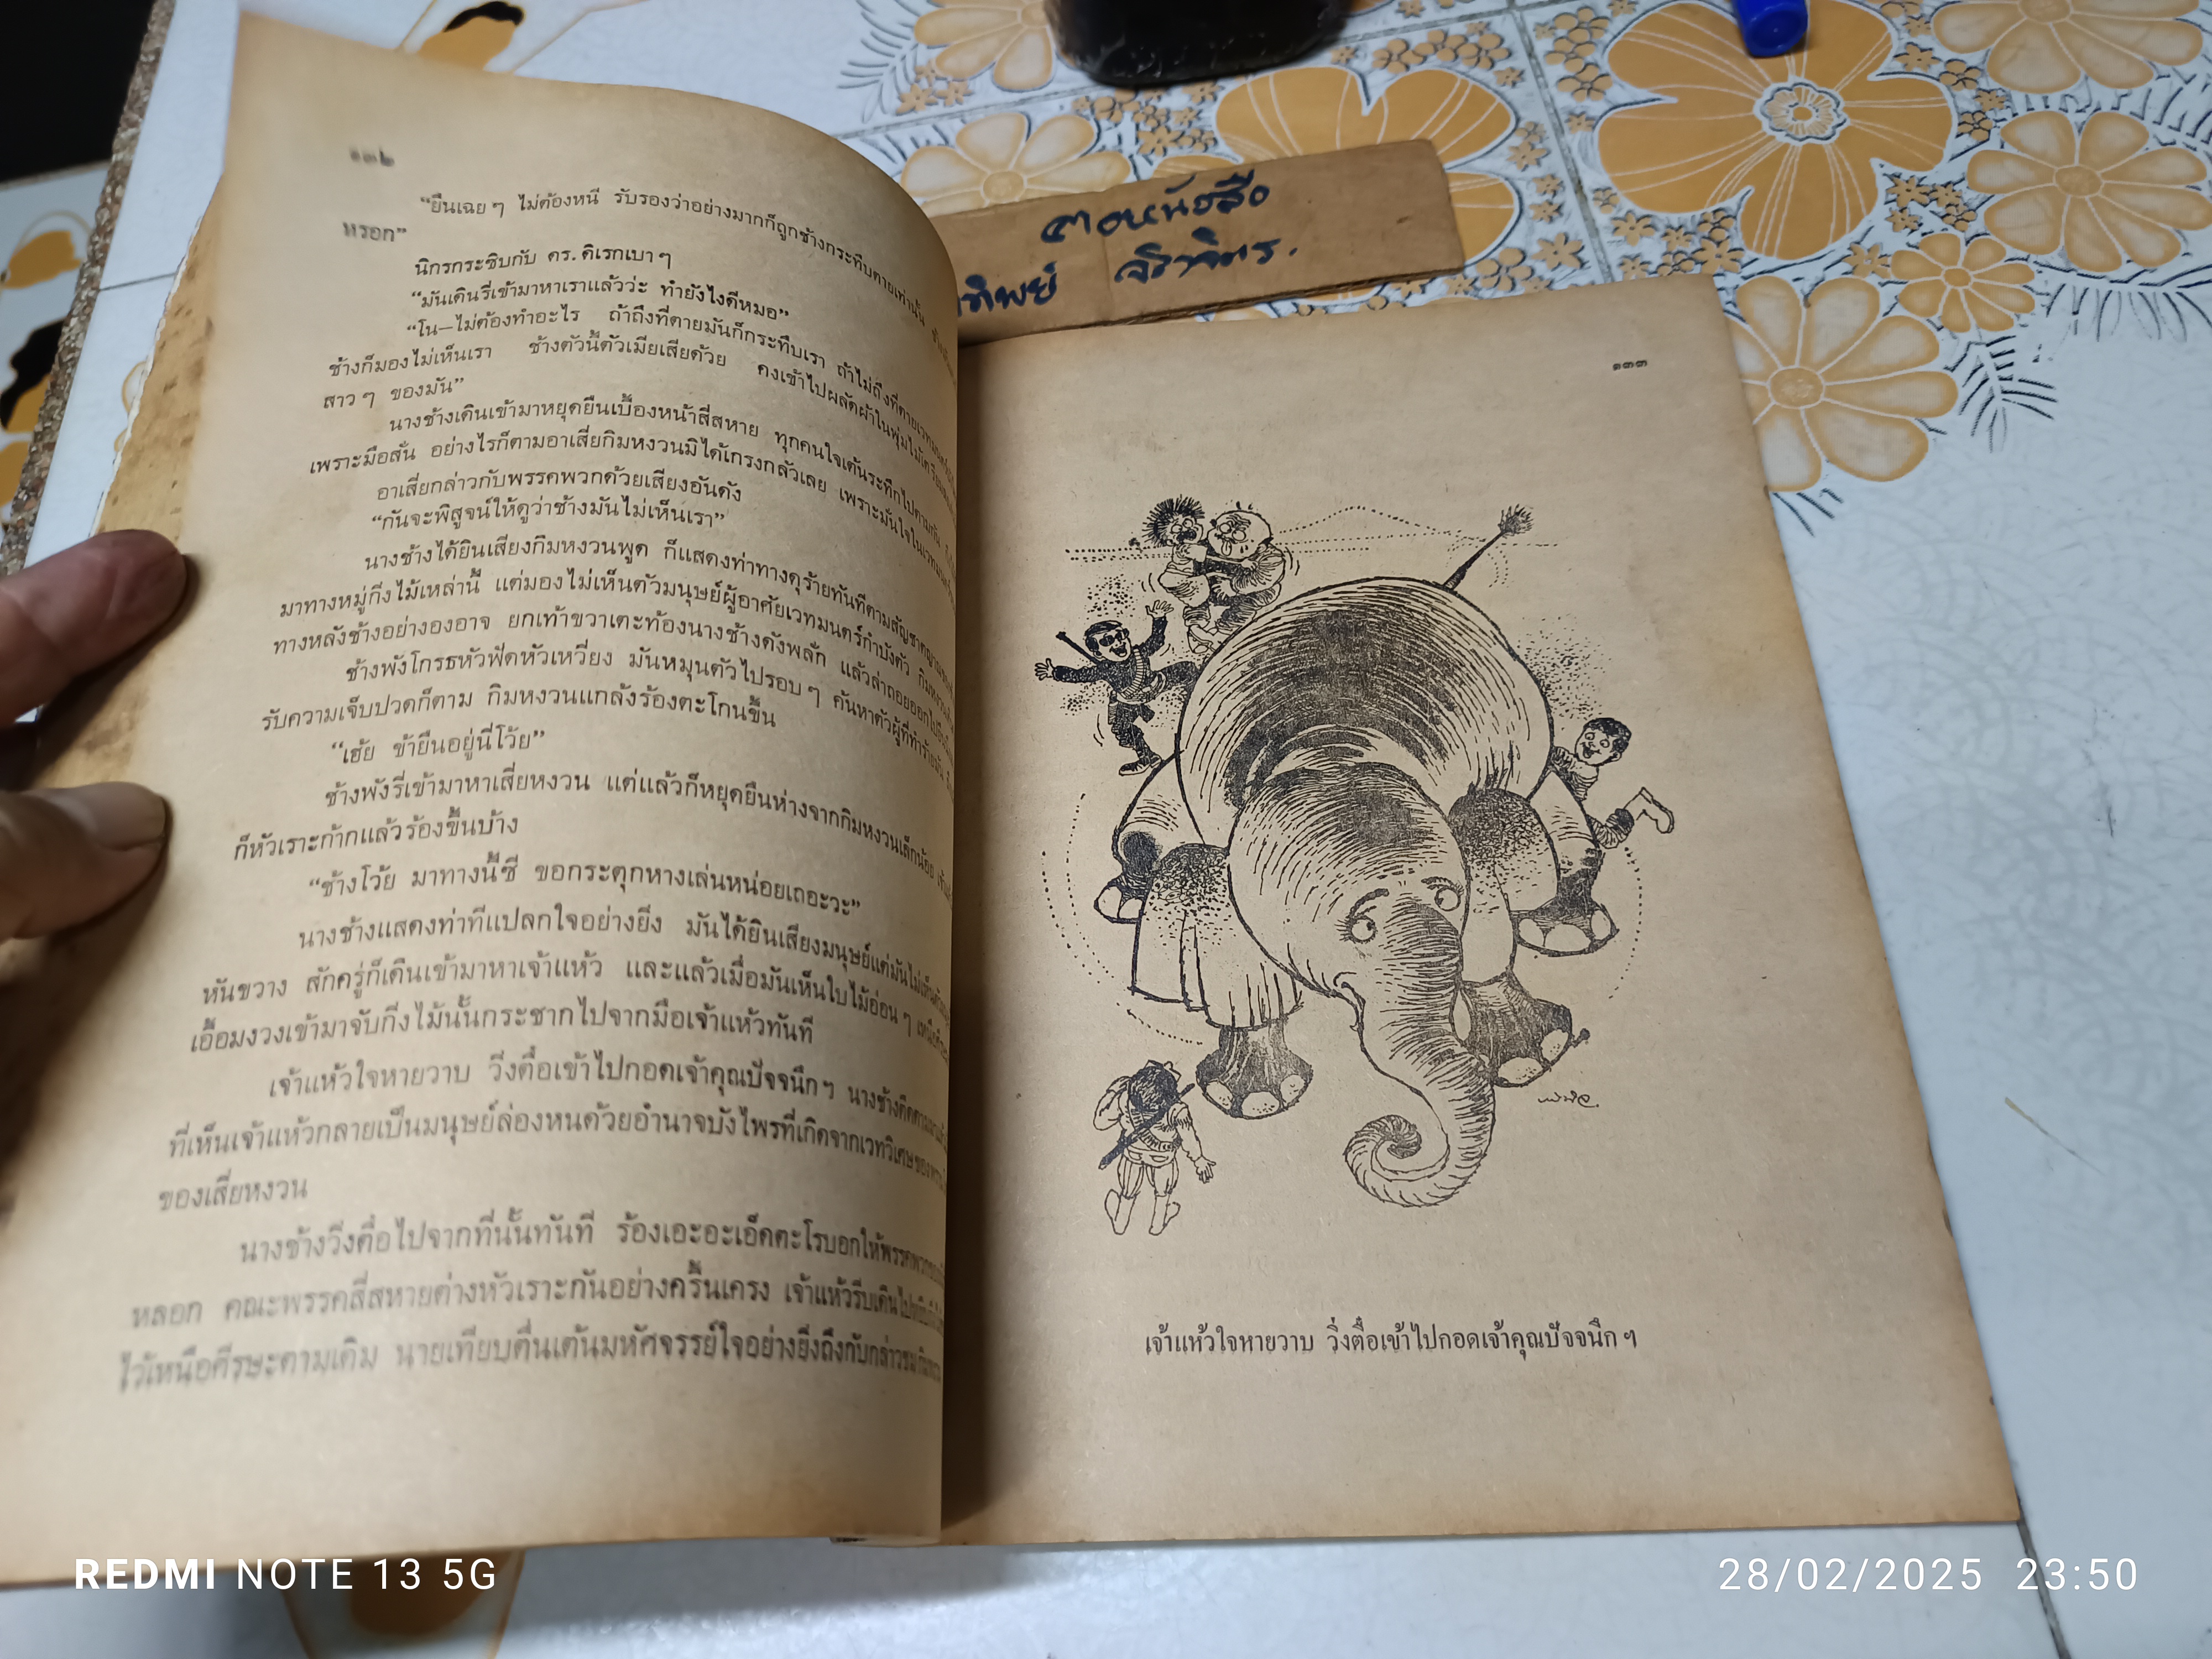 ๑๓๒
“ยืนเฉย ๆ ไม่ต้องหนี รับรองว่าอย่างมากก็ถูกช้างกระทืบตายเท่านั้น
หรอก”
นิกรกระซิบกับ ดร. ดิเรกเบา ๆ
“มันเดินรี่เข้ามาหาเราแล้วว่ะ ทำยังไงดีหมอ”
“โน—ไม่ต้องทำอะไร ถ้าถึงที่ตายมันก็กระทืบเรา ถ้าไม่ถึงที่ตาย
ช้างก็มองไม่เห็นเรา ช้างตัวนี้ตัวเมียเสียด้วย คงเข้าไปผลัดผ้าในพุ่มไม้
สาว ๆ ของมัน”
นางช้างเดินเข้ามาหยุดยืนเบื้องหน้าสี่สหาย ทุกคนใจเต้นระทึกไปตามกัน
เพราะมือสั่น อย่างไรก็ตามอาเสี่ยกิมหงวนมิได้เกรงกลัวเลย เพราะมั่นใจใน
อาเสี่ยกล่าวกับพรรคพวกด้วยเสียงอันดัง
“กันจะพิสูจน์ให้ดูว่าช้างมันไม่เห็นเรา”
นางช้างได้ยินเสียงกิมหงวนพูด ก็แสดงท่าทางดุร้ายทันทีตามสัญชาตญาณ
มาทางหมู่กิ่งไม้เหล่านี้ แต่มองไม่เห็นตัวมนุษย์ผู้อาศัยเวทมนตร์กำบังตัว กิมหงวน
ทางหลังช้างอย่างองอาจ ยกเท้าขวาเตะท้องนางช้างดังพลัก แล้วล่าถอยออกไป
ช้างพังโกรธหัวฟัดหัวเหวี่ยง มันหมุนตัวไปรอบ ๆ ค้นหาตัวผู้ที่ทำร้ายมัน
รับความเจ็บปวดก็ตาม กิมหงวนแกล้งร้องตะโกนขึ้น
“เฮ้ย ข้ายืนอยู่นี่โว้ย”
ช้างพังรี่เข้ามาหาเสี่ยหงวน แต่แล้วก็หยุดยืนห่างจากกิมหงวนเล็กน้อย
ก็หัวเราะก้ากแล้วร้องขึ้นบ้าง
“ช้างโว้ย มาทางนี้ซี ขอกระตุกหางเล่นหน่อยเถอะวะ”
นางช้างแสดงท่าทีแปลกใจอย่างยิ่ง มันได้ยินเสียงมนุษย์แต่มันไม่เห็น
หันขวาง สักครู่ก็เดินเข้ามาหาเจ้าแห้ว และแล้วเมื่อมันเห็นใบไม้อ่อน ๆ
เอื้อมงวงเข้ามาจับกิ่งไม้นั้นกระชากไปจากมือเจ้าแห้วทันที
เจ้าแห้วใจหายวาบ วิ่งตื๋อเข้าไปกอดเจ้าคุณปัจจนึก ๆ นางช้างติดตามมา
ที่เห็นเจ้าแห้วกลายเป็นมนุษย์ล่องหนด้วยอำนาจบังไพรที่เกิดจากเวทวิเศษของ
ของเสี่ยหงวน
นางช้างวิ่งตื๋อไปจากที่นั้นทันที ร้องเอะอะเอ็ดตะโรบอกให้พรรคพวก
หลอก คณะพรรคสี่สหายต่างหัวเราะกันอย่างครื้นเครง เจ้าแห้วรีบเดินไปหยิบ
ไว้เหนือศีรษะตามเดิม นายเทียบตื่นเต้นมหัศจรรย์ใจอย่างยิ่งถึงกับกล่าวชม
ทิพย์
๑๓๓
เจ้าแห้วใจหายวาบ วิ่งตื๋อเข้าไปกอดเจ้าคุณปัจจนึก ๆ
REDMI NOTE 13 5G
28/02/2025 23:50